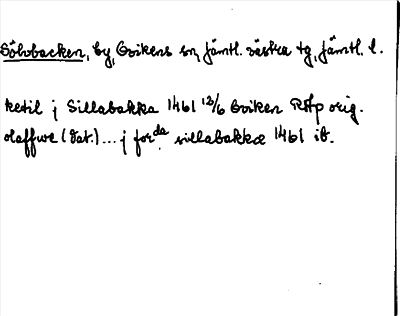 Sölvbacken, by, Ovikens sn, Jämtl. västra tg, Jämtl. l.
ketil j Sillabakka 1461 12/6 Oviken RAp orig.
olaffwe (dat.) ... j forda sillabakkæ 1461 ib.